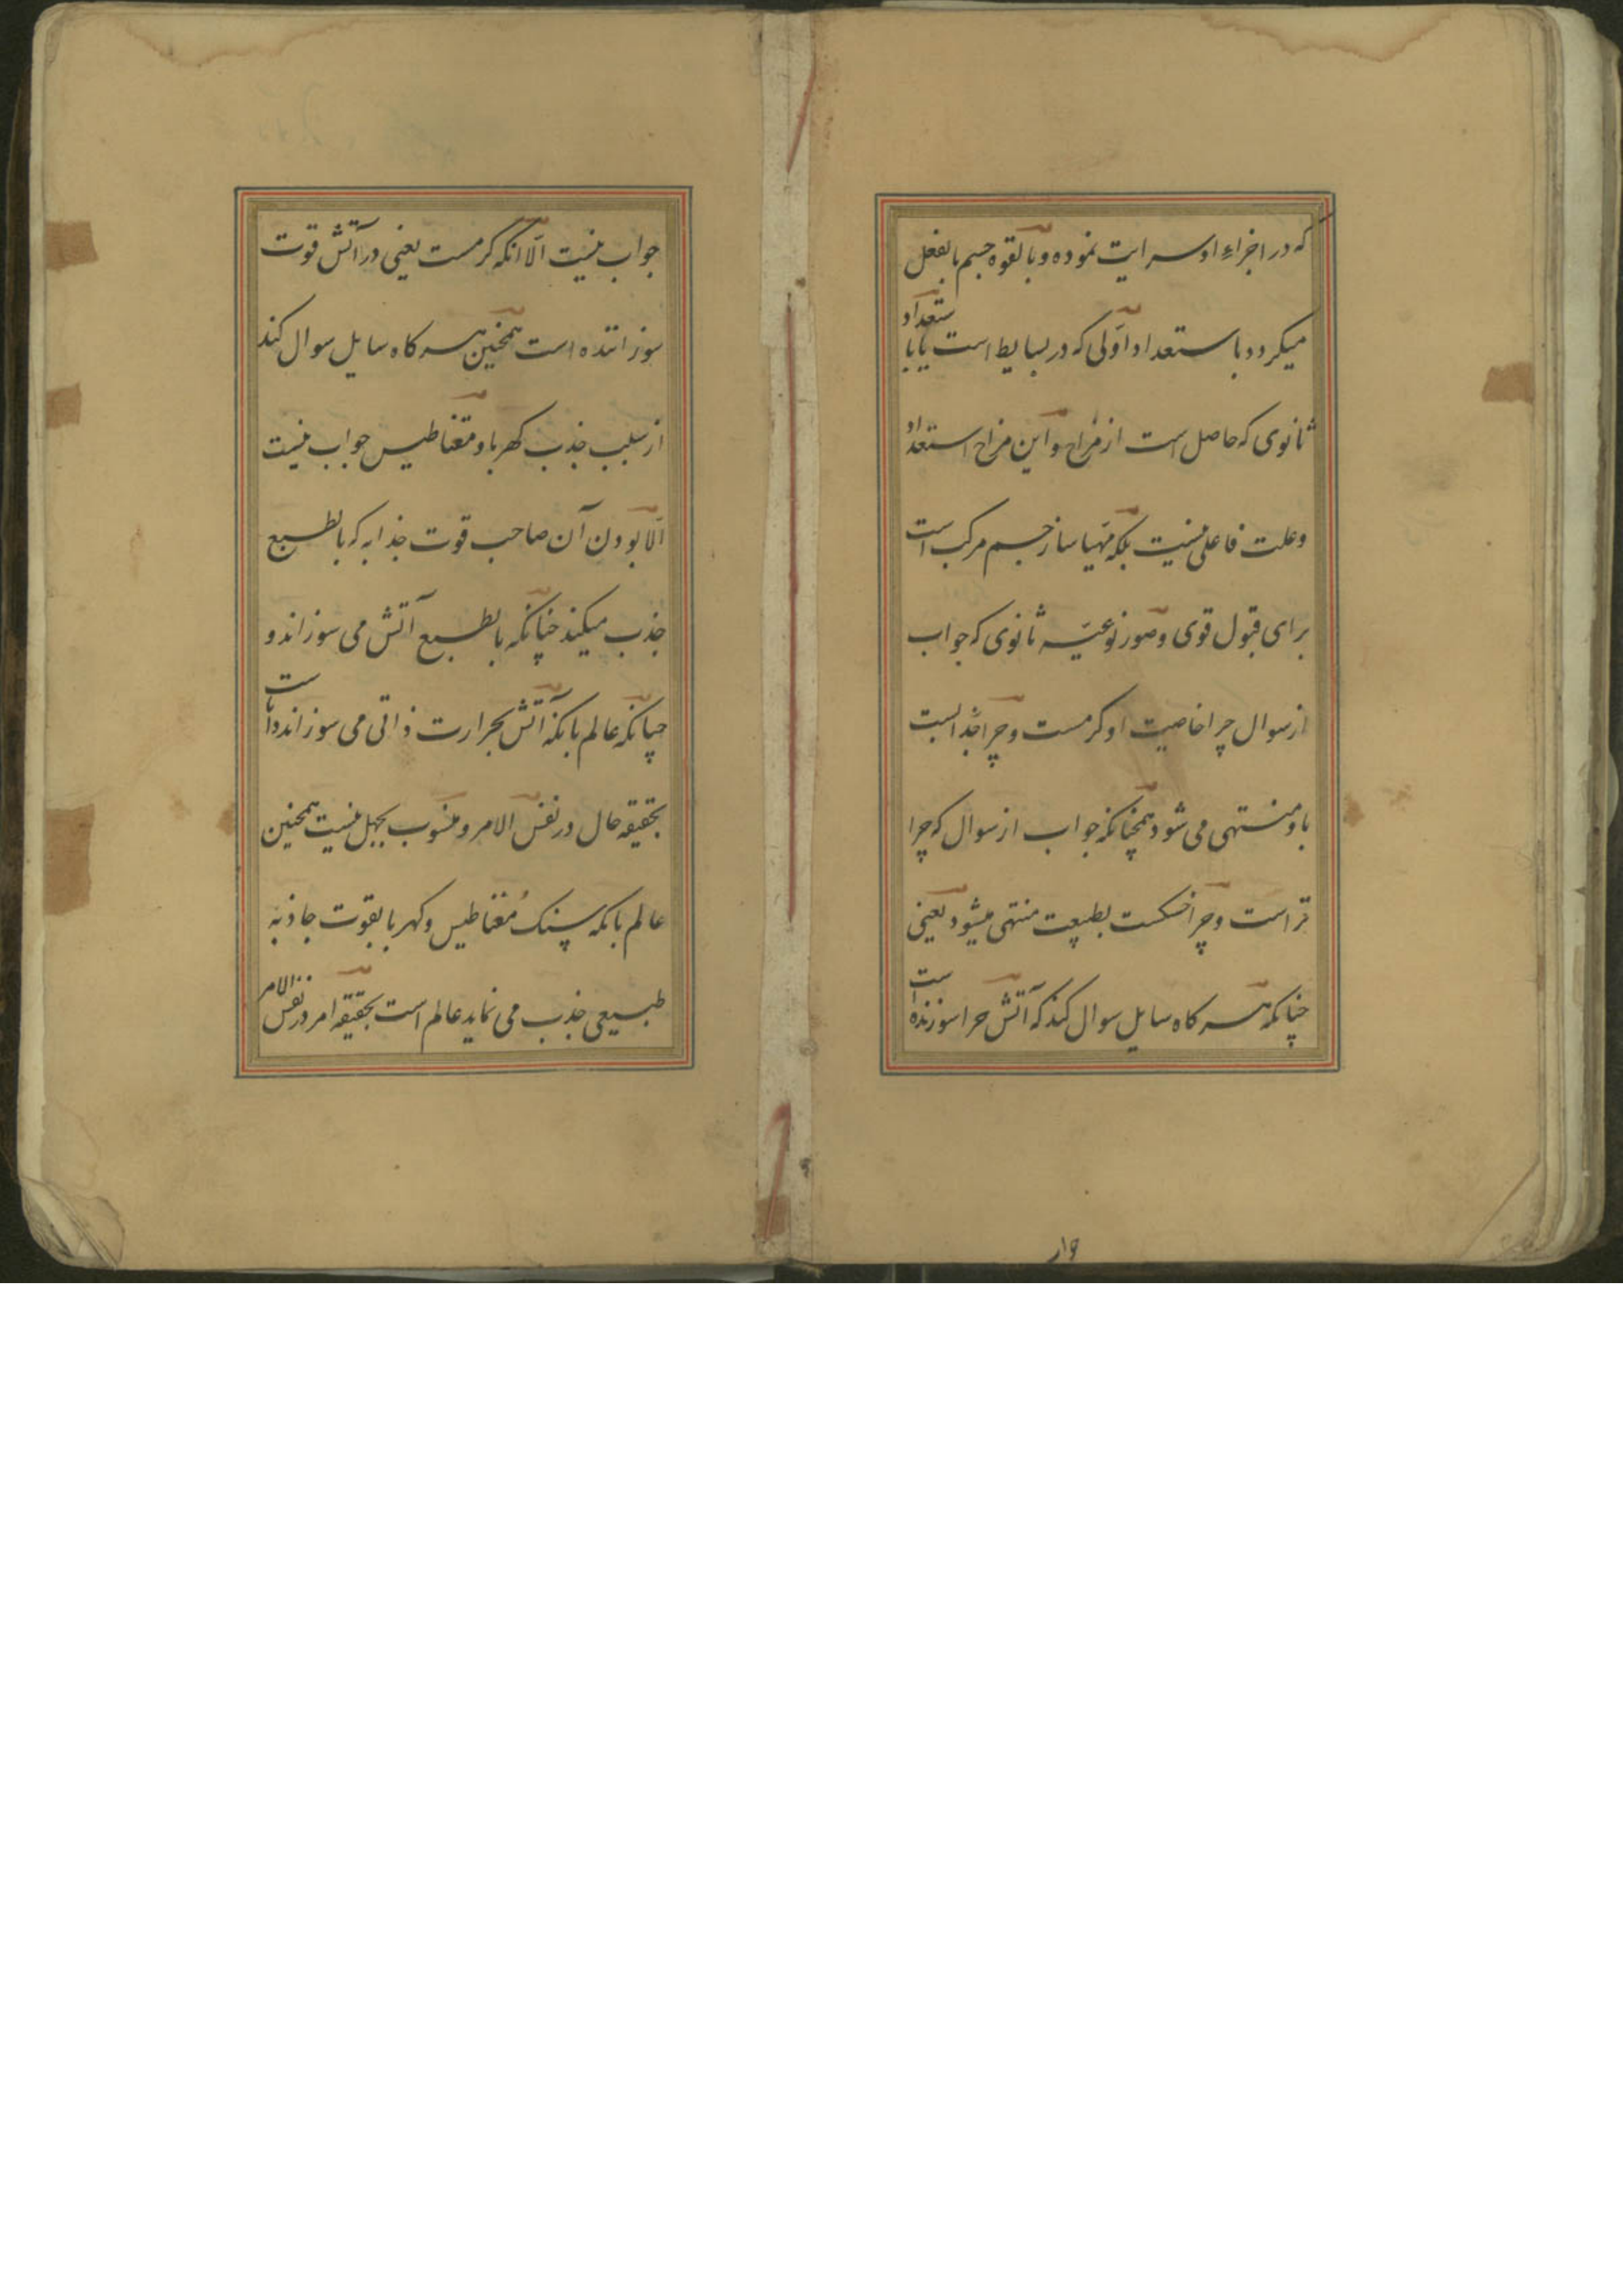 که در اجزاء او سرایت نموده و بالقوه جسم بالفعل
میکردد باستعداد اولی که در بسایط است یا باستعداد
ثانوی که حاصل است از مزاج و این مزاج استعداد
وعلت فاعلی نیست بلکه مهیا ساز جسم مرکب است
برای قبول قوی و صور نوعیه ثانوی که جواب
از سوال چرا خاصیت او کرمست و چرا جذابست
باو منتهی می شود همچنانکه جواب از سوال که چرا
تر است و چرا خشکست بطبیعت منتهی میشود یعنی
چنانکه هر کاه سایل سوال کند که آتش چرا سوزنده است
جوا
جواب نیست الا انکه کرمست یعنی در آتش قوت
سوزاننده است همچنین هر کاه سایل سوال کند
از سبب جذب کهربا و مقناطیس جواب نیست
الا بودن آن صاحب قوت جذابه که بالطبع
جذب میکند چنانکه بالطبع آتش می سوزاند و
چنانکه عالم بانکه آتش بحرارت ذاتی می سوزاند داناست
بحقیقه حال در نفس الامر و منسوب بجهل نیست همچنین
عالم بانکه سنک مغناطیس و کهربا بقوت جاذبه
طبیعی جذب می نماید عالم است بحقیقه امر در نفس الامر